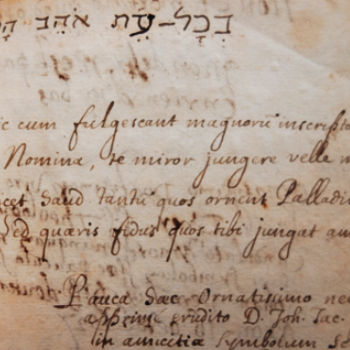 בְּכָל־עֵת אֹהֵב הָ
ic cum fulgescant magnorū inscripta
Nomina, te miror jungere velle
cet haud tantū quos ornent Palladi
Sed quæris fidus quos tibi jungat am
Pauca hæc Ornatissimo nec
apprime erudito D. Joh. Jac.
in amicitiæ Symbolum